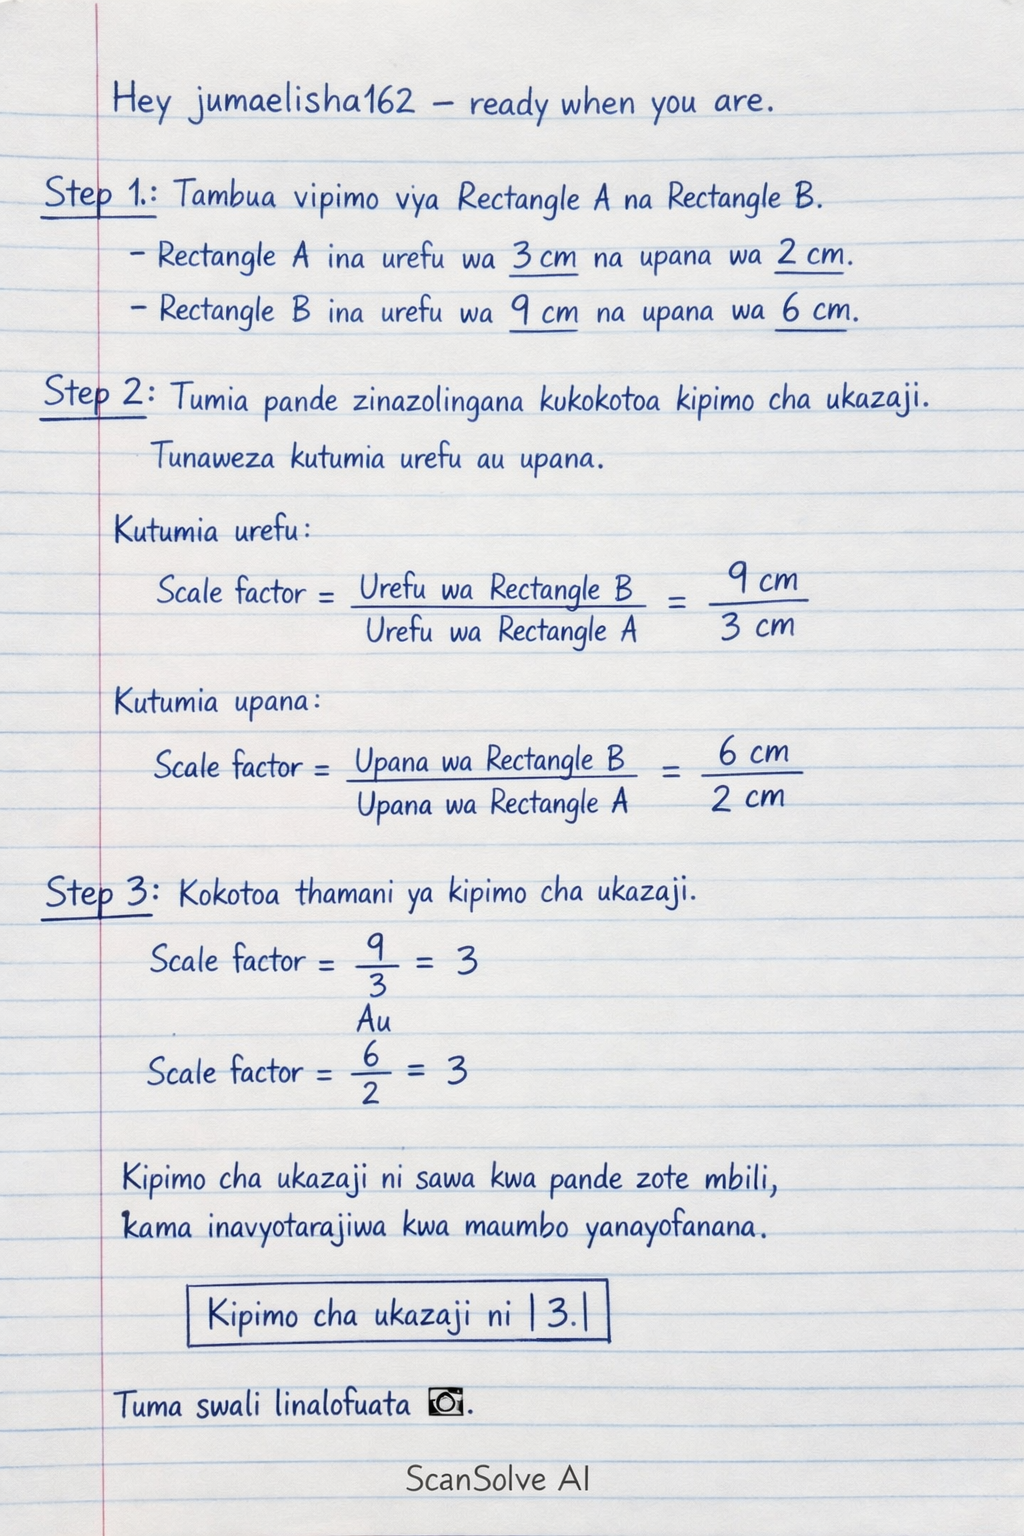 Hey jumaelisha162 – ready when you are.
Step 1.: Tambua vipimo vya Rectangle A na Rectangle B.
– Rectangle A ina urefu wa 3 cm na upana wa 2 cm.
– Rectangle B ina urefu wa 9 cm na upana wa 6 cm.
Step 2: Tumia pande zinazolingana kukokotoa kipimo cha ukazaji.
Tunaweza kutumia urefu au upana.
Kutumia urefu:
Scale factor = Urefu wa Rectangle B / Urefu wa Rectangle A = 9 cm / 3 cm
Kutumia upana:
Scale factor = Upana wa Rectangle B / Upana wa Rectangle A = 6 cm / 2 cm
Step 3: Kokotoa thamani ya kipimo cha ukazaji.
Scale factor = 9 / 3 = 3
Au
Scale factor = 6 / 2 = 3
Kipimo cha ukazaji ni sawa kwa pande zote mbili,
kama inavyotarajiwa kwa maumbo yanayofanana.
Kipimo cha ukazaji ni |3.|
Tuma swali linalofuata 📷.
ScanSolve AI